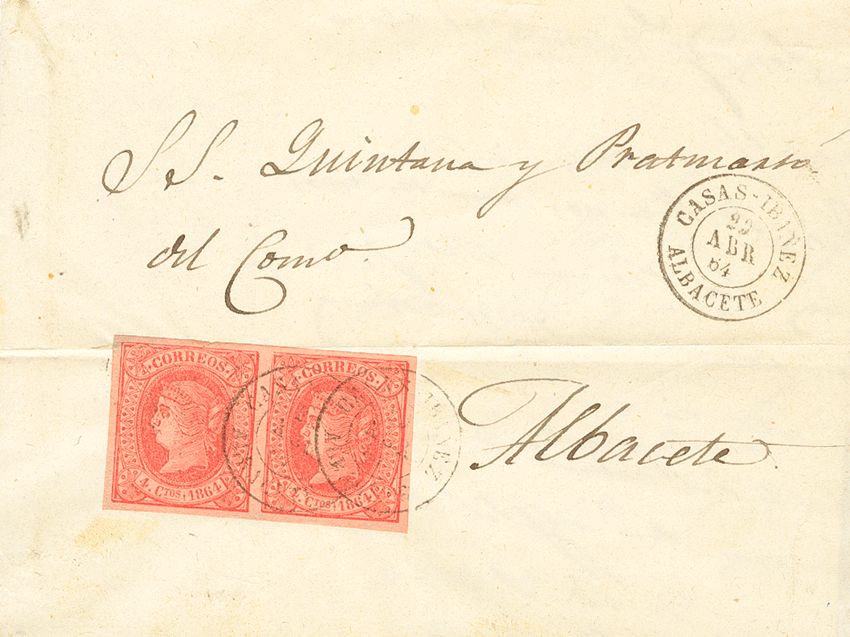 S.S. Quintana y Pratmarsó
del Como.
CASAS-IBAÑEZ
29
ABR
64
ALBACETE
CORREOS
4. CTOS 1864
CORREOS
4. CTOS 1864
Albacete.